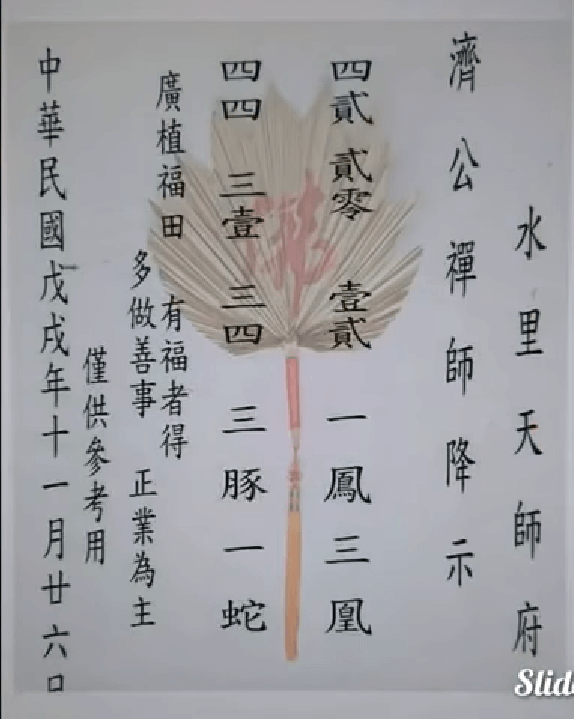 水里天師府
濟公禪師降示
四貳 貳零 壹貳 一鳳三凰
四四 三壹 三四 三豚一蛇
廣植福田 有福者得
多做善事 正業為主
僅供參考用
中華民國戊戌年十一月廿六日